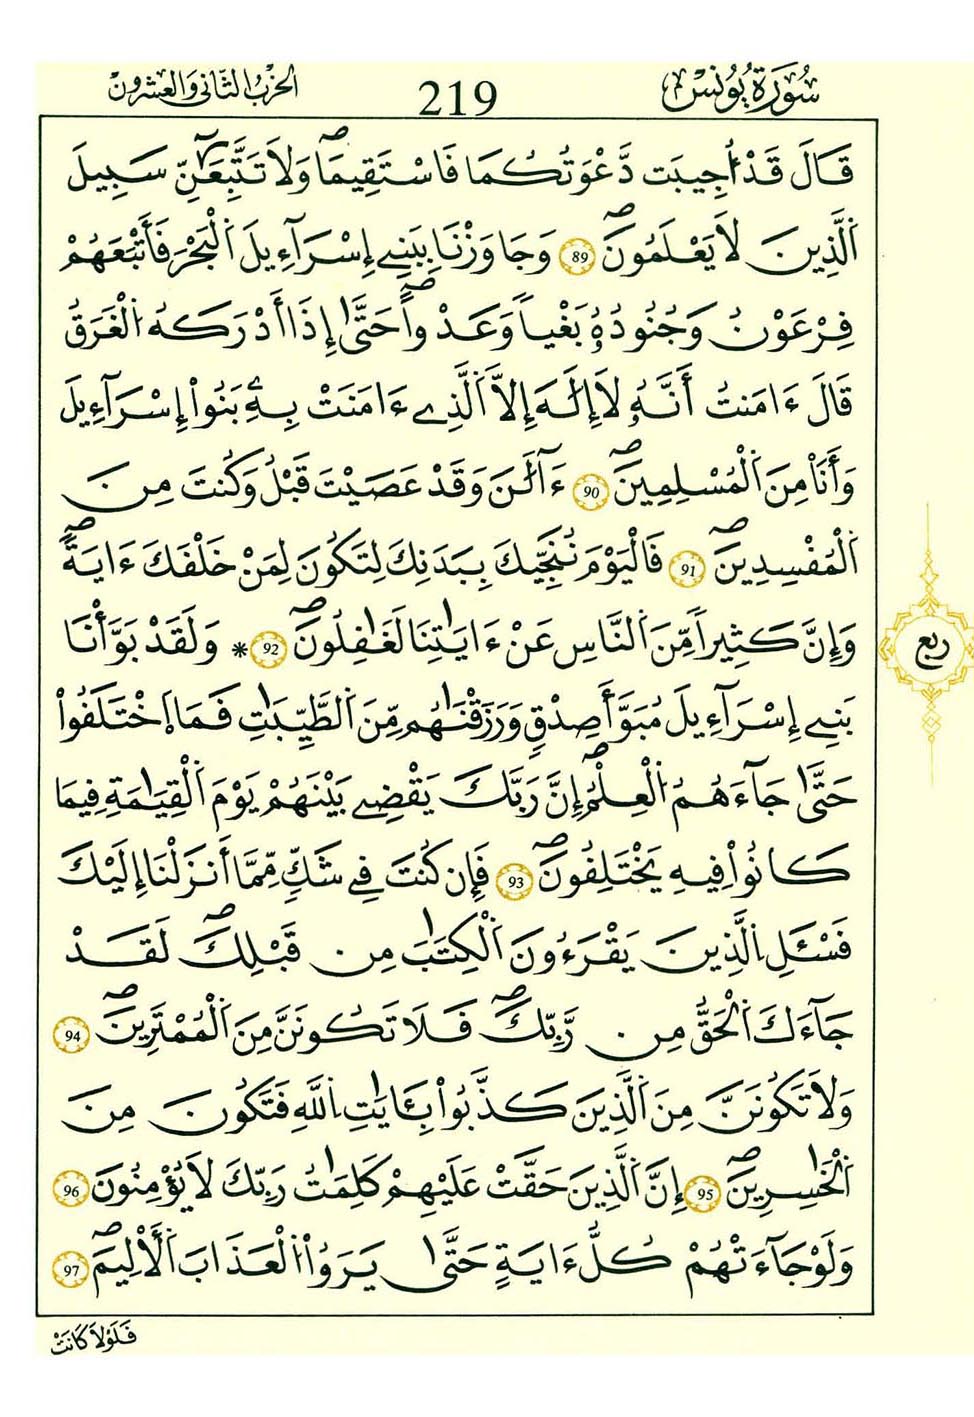 سُورَةُ يُونُسَ 219 الحزب الثاني والعشرون
قَالَ قَدُ ا۟جِيبَت دَّعْوَتُكُمَا فَاسْتَقِيمَا وَلَا تَتَّبِعَٰٓنِّ سَبِيلَ
اَ۬لذِينَ لَا يَعْلَمُونَ 89 وَجَٰوَزْنَا بِبَنِےٓ إِسْرَآءِيلَ اَ۬لْبَحْرَ فَأَتْبَعَهُمْ
فِرْعَوْنُ وَجُنُودُهُۥ بَغْياً وَعَدْواً حَتَّىٰٓ إِذَآ أَدْرَكَهُ اُ۬لْغَرَقُ
قَالَ ءَامَنتُ أَنَّهُۥ لَآ إِلَٰهَ إِلَّا اَ۬لذِےٓ ءَامَنَتْ بِهِۦ بَنُوٓاْ إِسْرَآءِيلَ
وَأَنَا مِنَ اَ۬لْمُسْلِمِينَ 90 ءَآلَٰنَ وَقَدْ عَصَيْتَ قَبْلُ وَكُنتَ مِنَ
اَ۬لْمُفْسِدِينَ 91 فَالْيَوْمَ نُنَجِّيكَ بِبَدَنِكَ لِتَكُونَ لِمَنْ خَلْفَكَ ءَايَةً
وَإِنَّ كَثِيراً مِّنَ اَ۬لنَّاسِ عَنْ ءَايَٰتِنَا لَغَٰفِلُونَ 92 * وَلَقَدْ بَوَّأْنَا
بَنِےٓ إِسْرَآءِيلَ مُبَوَّأَ صِدْقٍ وَرَزَقْنَٰهُم مِّنَ اَ۬لطَّيِّبَٰتِ فَمَا اَ۪خْتَلَفُواْ
حَتَّىٰ جَآءَهُمُ اُ۬لْعِلْمُ إِنَّ رَبَّكَ يَقْضِے بَيْنَهُمْ يَوْمَ اَ۬لْقِيَٰمَةِ فِيمَا
كَانُواْ فِيهِ يَخْتَلِفُونَ 93 فَإِن كُنتَ فِے شَكٍّ مِّمَّآ أَنزَلْنَآ إِلَيْكَ
فَسْـَٔلِ اِ۬لذِينَ يَقْرَءُونَ اَ۬لْكِتَٰبَ مِن قَبْلِكَ لَقَدْ
جَآءَكَ اَ۬لْحَقُّ مِن رَّبِّكَ فَلَا تَكُونَنَّ مِنَ اَ۬لْمُمْتَرِينَ 94
وَلَا تَكُونَنَّ مِنَ اَ۬لذِينَ كَذَّبُواْ بِـَٔايَٰتِ اِ۬للَّهِ فَتَكُونَ مِنَ
اَ۬لْخَٰسِرِينَ 95 إِنَّ اَ۬لذِينَ حَقَّتْ عَلَيْهِمْ كَلِمَٰتُ رَبِّكَ لَا يُؤْمِنُونَ 96
وَلَوْ جَآءَتْهُمْ كُلُّ ءَايَةٍ حَتَّىٰ يَرَوُاْ اُ۬لْعَذَابَ اَ۬لْأَلِيمَ 97
ربع
فَلَوْلَا كَانَتْ